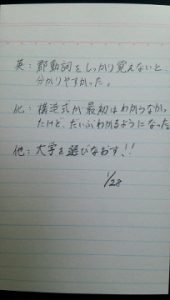 英：群動詞をしっかり覚えないと、
分かりやすかった。
化：構造式が最初はわからなかっ
たけど、だいぶわかるようになった
他：大学を選びなおす!!
1/28